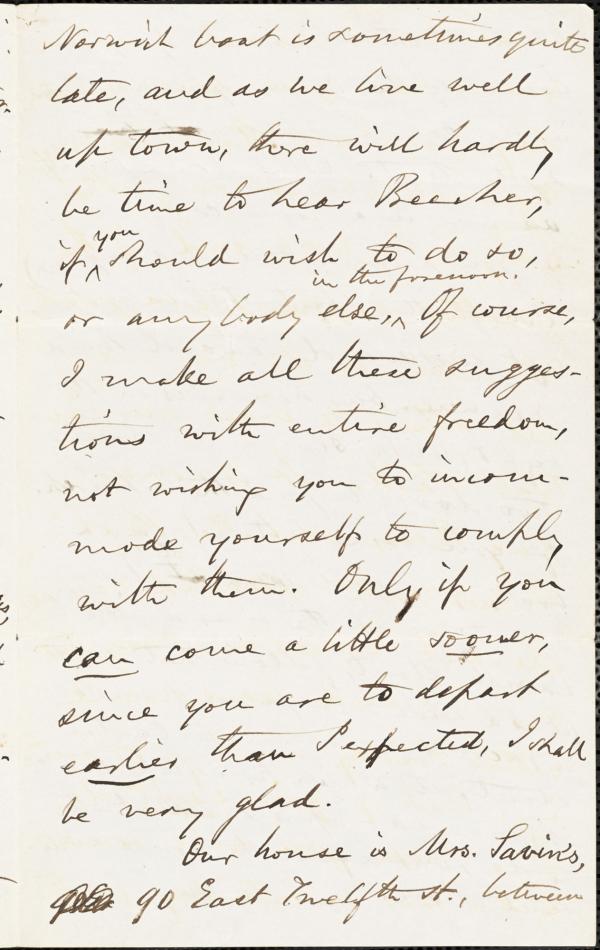 Norwich boat is sometimes quite
late, and as we live well
up town, there will hardly
be time to hear Beecher,
if you should wish to do so,
in the forenoon.
or anybody else, Of course,
I make all these sugges-
tions with entire freedom,
not wishing you to incom-
mode yourself to comply
with them. Only if you
can come a little sooner,
since you are to depart
earlier than I expected, I shall
be very glad.
Our house is Mrs. Savin's,
90 East Twelfth st., between